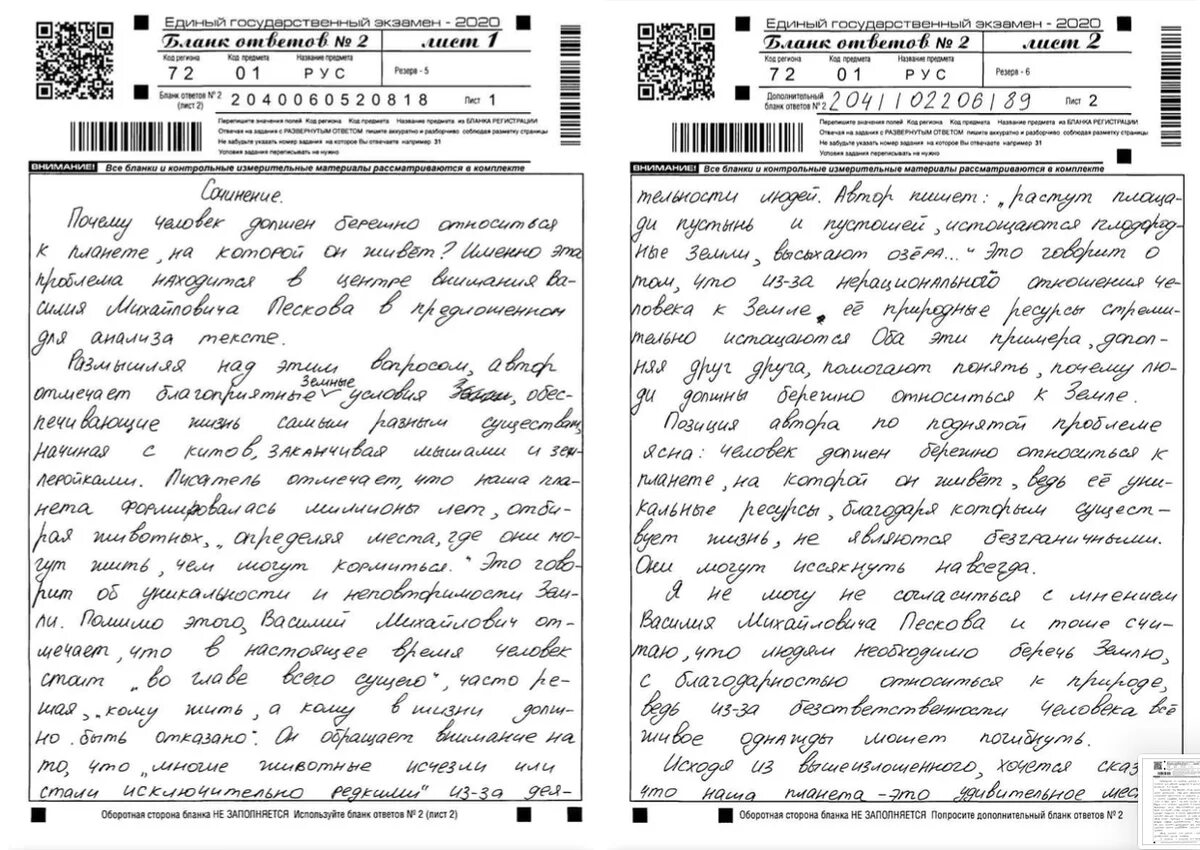 Единый государственный экзамен - 2020
Бланк ответов № 2 лист 1
Код региона Код предмета Название предмета
72 01 РУС Резерв - 5
Бланк ответов № 2 (лист 2) 2040060520818 Лист 1
Перепишите значения полей Код региона Код предмета Название предмета из БЛАНКА РЕГИСТРАЦИИ
Отвечая на задания с РАЗВЕРНУТЫМ ОТВЕТОМ пишите аккуратно и разборчиво соблюдая разметку страницы
Не забудьте указать номер задания на которое Вы отвечаете например 31
Условия задания переписывать не нужно
ВНИМАНИЕ! Все бланки и контрольные измерительные материалы рассматриваются в комплекте
Сочинение.
Почему человек должен бережно относиться
к планете, на которой он живёт? Именно эта
проблема находится в центре внимания Ва-
силия Михайловича Пескова в предложенном
для анализа тексте.
Размышляя над этим вопросом, автор
отмечает благоприятные земные условия, обес-
печивающие жизнь самым разным существам,
начиная с китов, заканчивая мышами и зем-
леройками. Писатель отмечает, что наша пла-
нета формировалась миллионы лет, отби-
рая животных, „определяя места, где они мо-
гут жить, чем могут кормиться." Это гово-
рит об уникальности и неповторимости Зем-
ли. Помимо этого, Василий Михайлович от-
мечает, что в настоящее время человек
стоит „во главе всего сущего", часто ре-
шая, „кому жить, а кому в жизни долж-
но быть отказано". Он обращает внимание на
то, что „многие животные исчезли или
стали исключительно редкими" из-за дея-
Оборотная сторона бланка НЕ ЗАПОЛНЯЕТСЯ Используйте бланк ответов № 2 (лист 2)
Единый государственный экзамен - 2020
Бланк ответов № 2 лист 2
Код региона Код предмета Название предмета
72 01 РУС Резерв - 6
Дополнительный бланк ответов № 2 2041102206189 Лист 2
Перепишите значения полей Код региона Код предмета Название предмета из БЛАНКА РЕГИСТРАЦИИ
Отвечая на задания с РАЗВЕРНУТЫМ ОТВЕТОМ пишите аккуратно и разборчиво соблюдая разметку страницы
Не забудьте указать номер задания на которое Вы отвечаете например 31
Условия задания переписывать не нужно
ВНИМАНИЕ! Все бланки и контрольные измерительные материалы рассматриваются в комплекте
тельности людей. Автор пишет: „растут площа-
ди пустынь и пустошей, истощаются плодород-
ные земли, высыхают озёра..." Это говорит о
том, что из-за нерационального отношения че-
ловека к Земле, её природные ресурсы стреми-
тельно истощаются Оба эти примера, допол-
няя друг друга, помогают понять, почему лю-
ди должны бережно относиться к Земле.
Позиция автора по поднятой проблеме
ясна: человек должен бережно относиться к
планете, на которой он живёт, ведь её уни-
кальные ресурсы, благодаря которым сущест-
вует жизнь, не являются безграничными.
Они могут иссякнуть навсегда.
Я не могу не согласиться с мнением
Василия Михайловича Пескова и тоже счи-
таю, что людям необходимо беречь Землю,
с благодарностью относиться к природе,
ведь из-за безответственности человека всё
живое однажды может погибнуть.
Исходя из вышеизложенного, хочется сказ
что наша планета - это удивительное мес
Оборотная сторона бланка НЕ ЗАПОЛНЯЕТСЯ Попросите дополнительный бланк ответов № 2